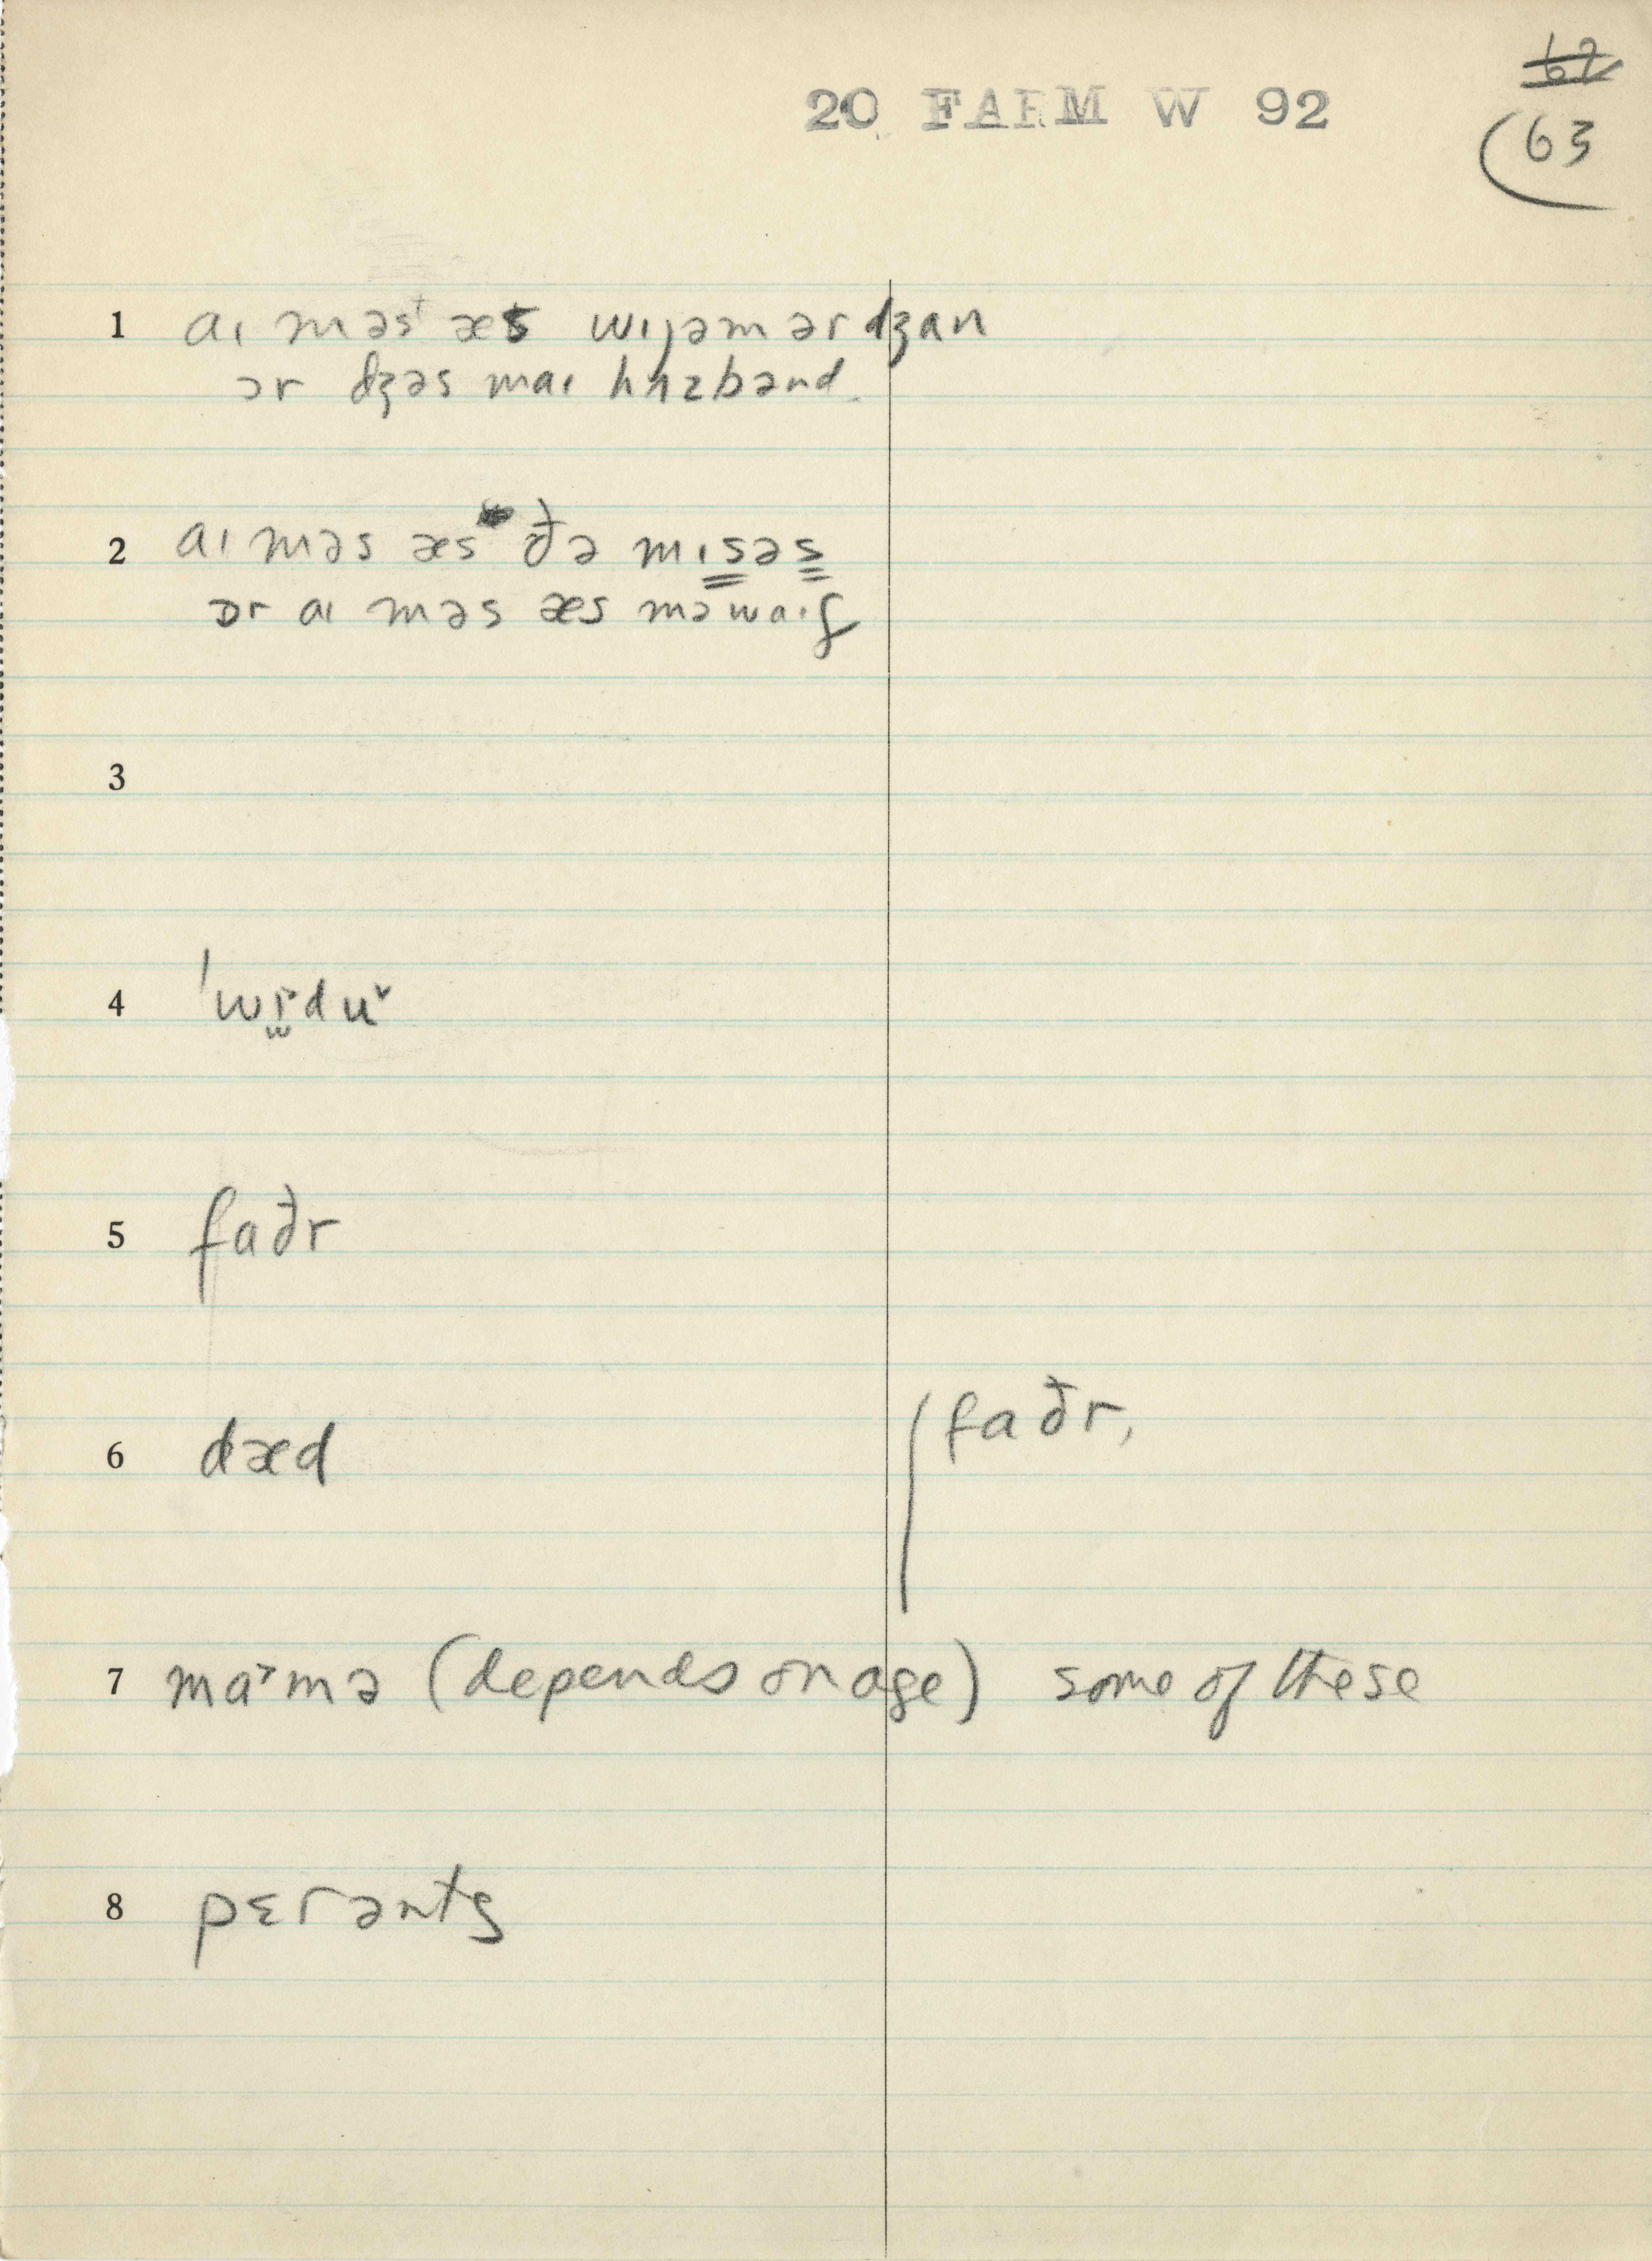 20 FARM W 92
63
1 aɪ məst æs wɪjəm ər dʒan
ər dʒəs maɪ hʌzbənd
2 aɪ məs æs ðə mɪsəs
ɔr aɪ məs æs məwaɪf
3
4 'wɪdu
5 faðr
6 dæd faðr,
7 ma˃mə (depends on age) some of these
8 pɛrənts